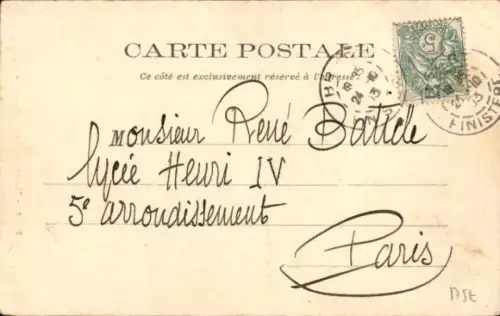 CARTE POSTALE
Ce côté est exclusivement réservé à l'adresse
Monsieur René
Lycée Henri IV
5e arrondissement
Paris
FINIST